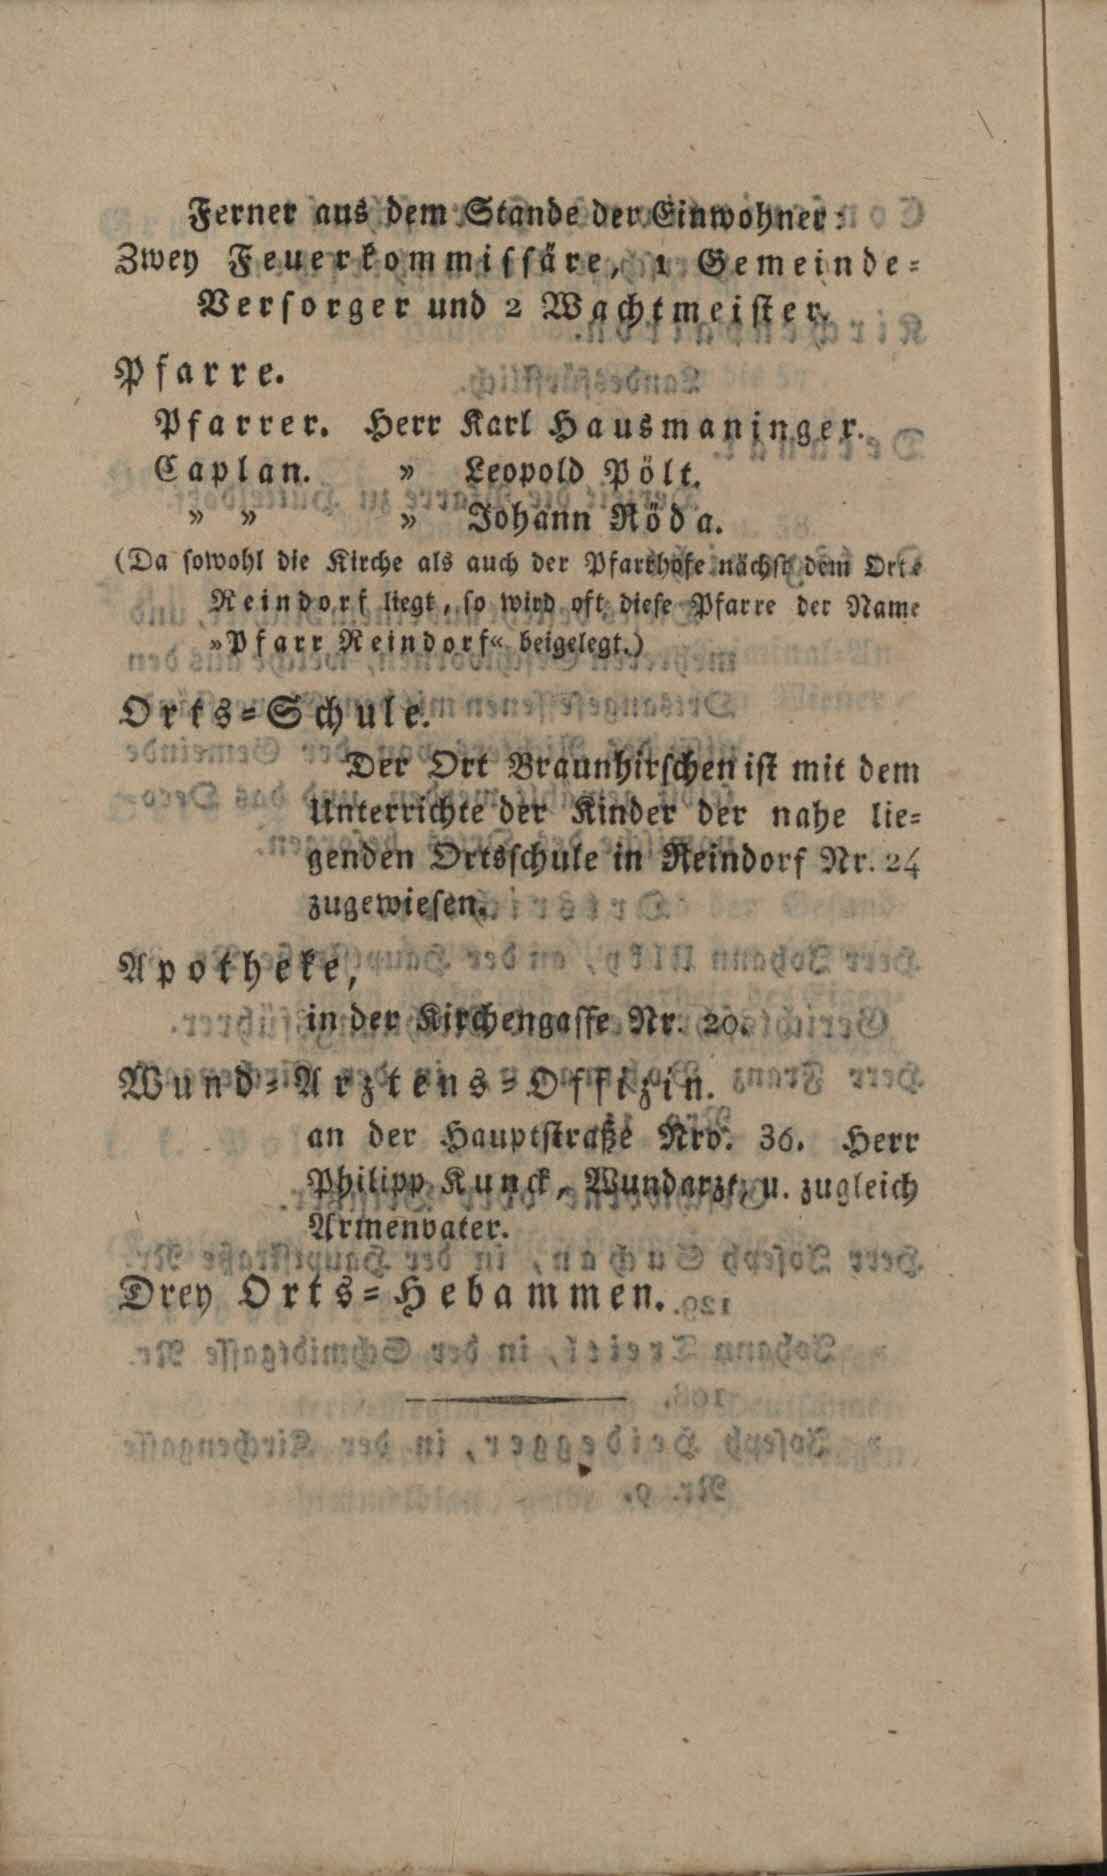 Ferner aus dem Stande der Einwohner:
Zwey Feuerkommissäre, 1 Gemeinde-
Versorger und 2 Wachtmeister.
Pfarre.
Pfarrer. Herr Karl Hausmaninger.
Caplan. » Leopold Pölt.
» » » Johann Röda.
(Da sowohl die Kirche als auch der Pfarrhofe nächst dem Orte
Reindorf liegt, so wird oft diese Pfarre der Name
»Pfarr Reindorf« beigelegt.)
Orts-Schule.
Der Ort Braunhirschen ist mit dem
Unterrichte der Kinder der nahe lie-
genden Ortsschule in Reindorf Nr. 24
zugewiesen.
Apotheke,
in der Kirchengasse Nr. 20.
Wund-Arztens-Offizin.
an der Hauptstraße Nro. 36. Herr
Philipp Kunck, Wundarzt, u. zugleich
Armenvater.
Drey Orts-Hebammen.